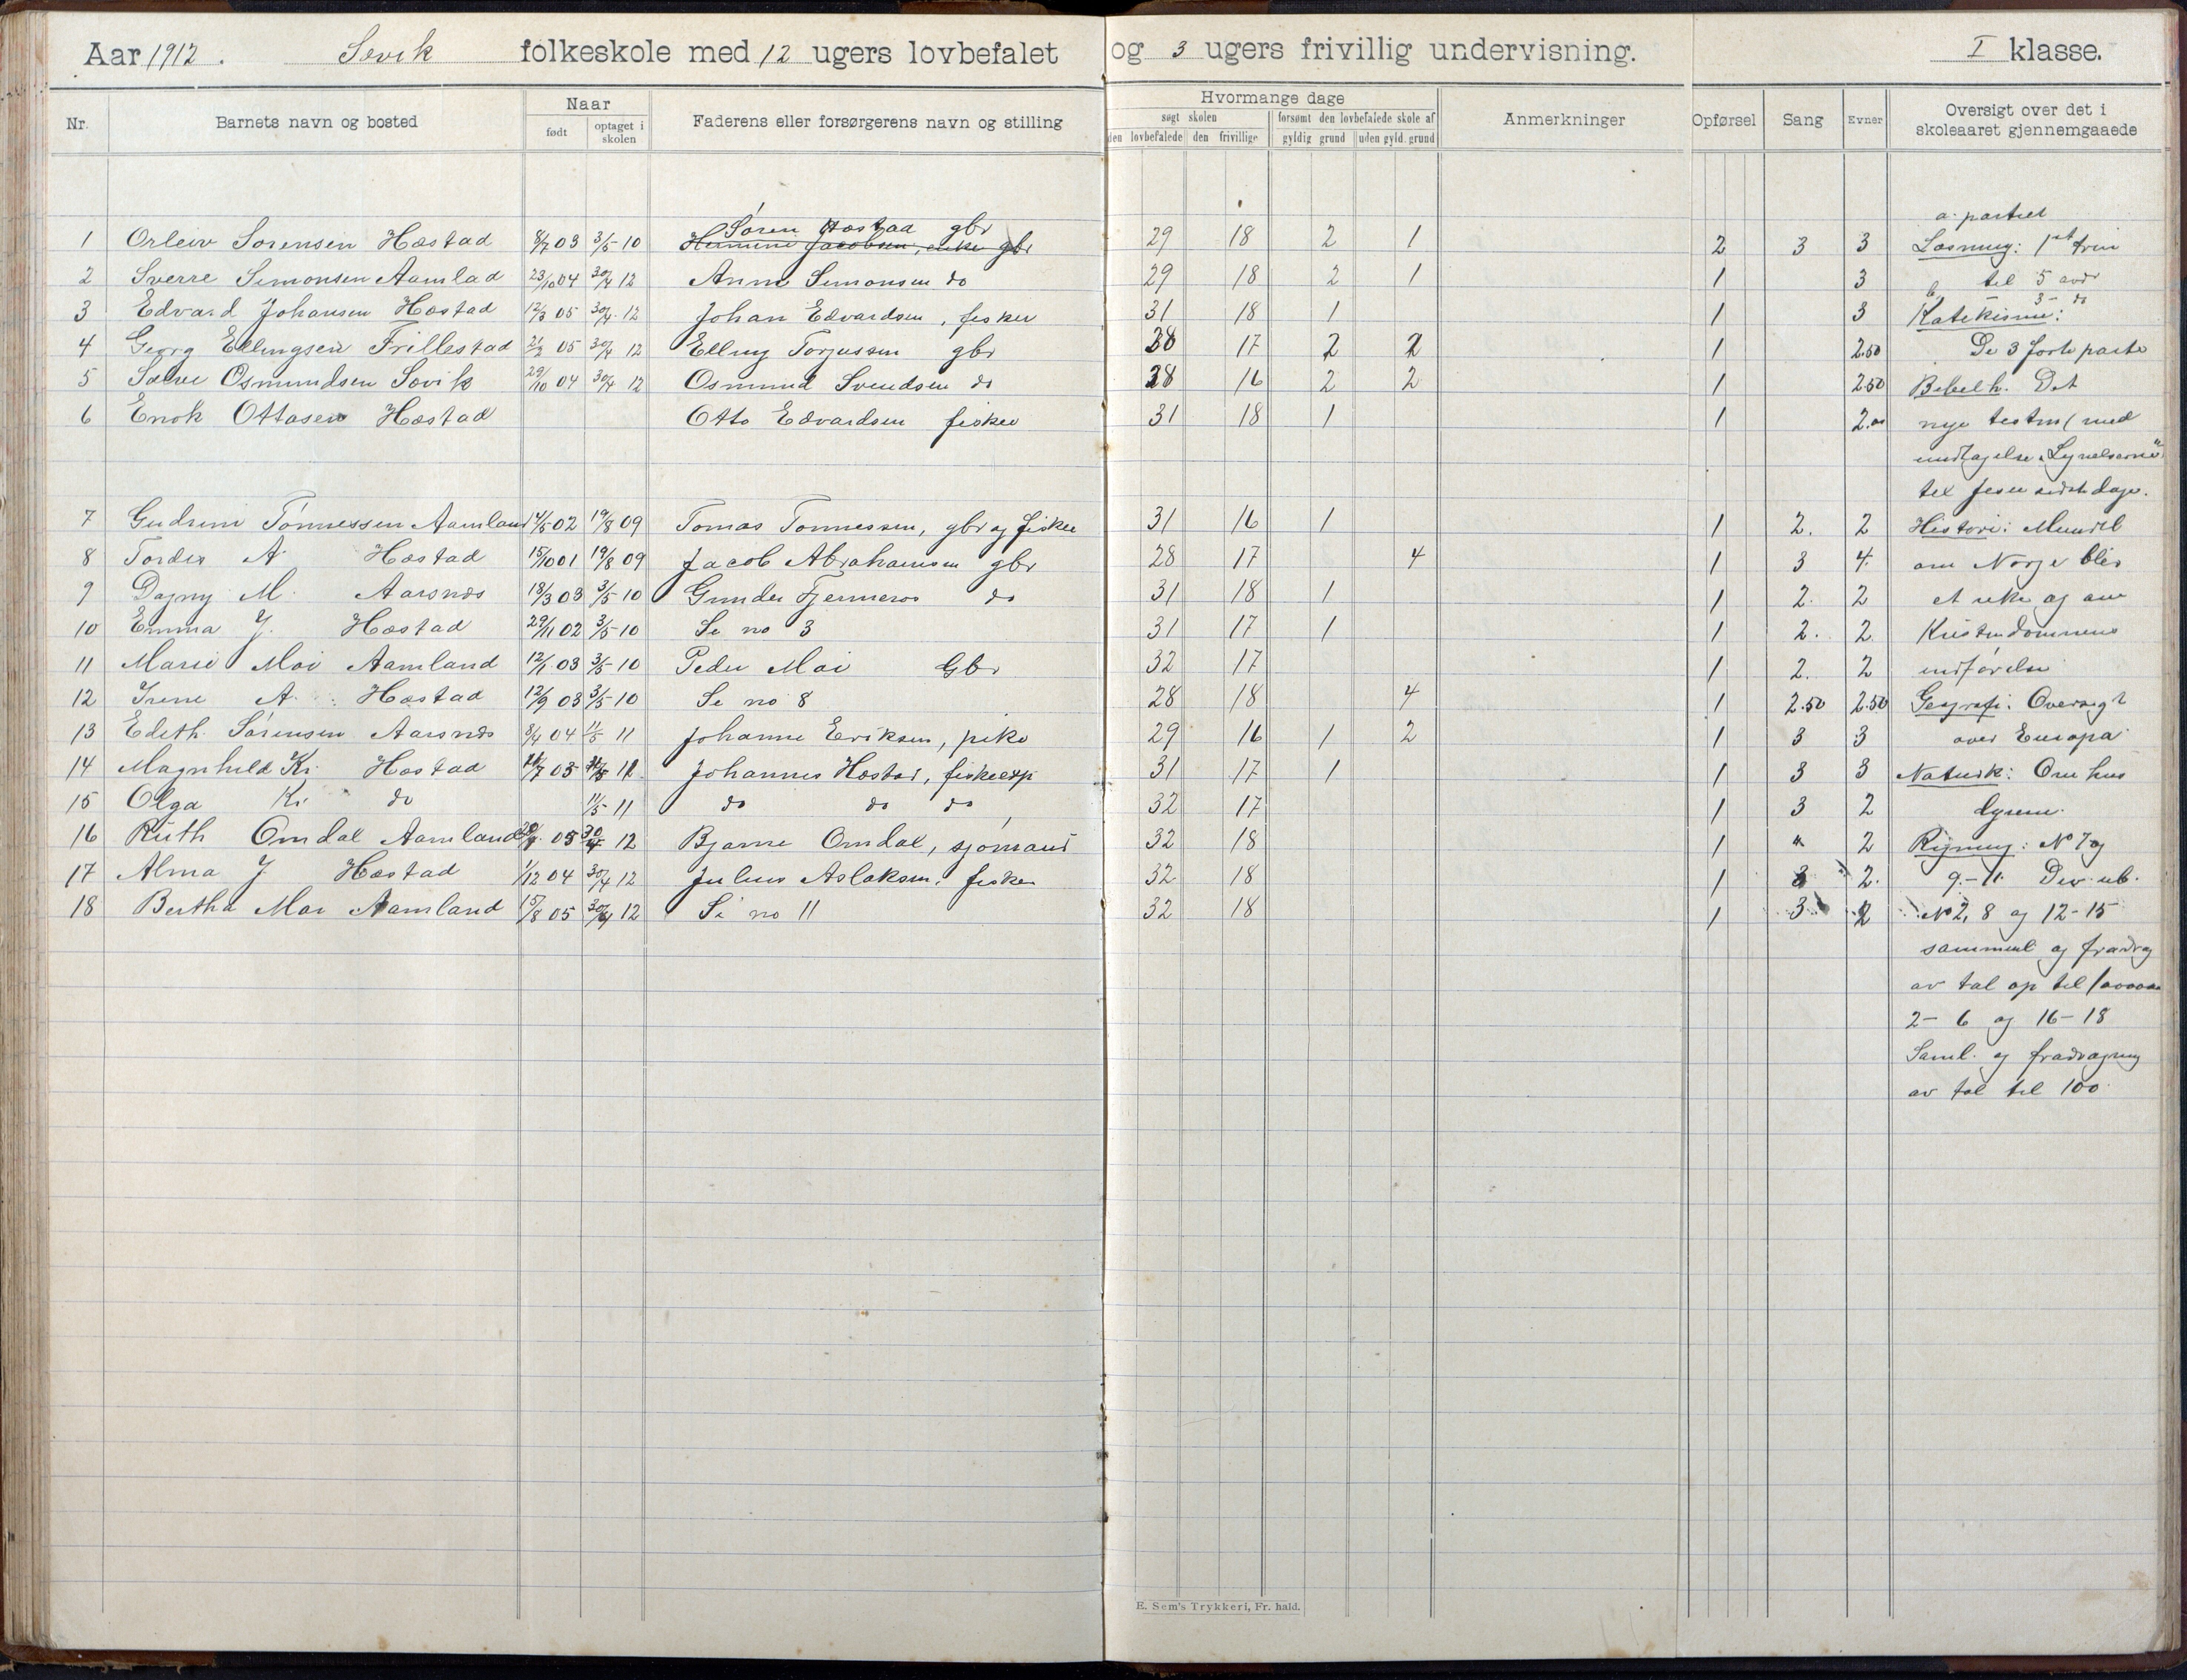 Aar 1912. Sevik folkeskole med 12 ugers lovbefalet og 3 ugers frivillig undervisning. I klasse.
Nr. Barnets navn og bosted Naar født optaget i skolen Faderens eller forsørgerens navn og stilling Hvormange dage søgt skolen den lovbefalede den frivillige forsømt den lovbefalede skole af gyldig grund uden gyld. grund Anmerkninger Opførsel Sang Evner Oversigt over det i skoleaaret gjennemgaaede
a. partiet
Søren Hæstad gbr
1 Orleiv Sørensen Hæstad 8/7 03 3/5 10 Hermine Jacobsen, enke gbr 29 18 2 1 2 3 3 Læsning: 1st trin
2 Sverre Simonsen Aamlad 23/10 04 30/4 12 Anne Simonsen do 29 18 2 1 1 3 til 5 avd
3 - do
3 Edvard Johansen Hæstad 12/3 05 30/4 12 Johan Edvardsen, fisker 31 18 1 1 3 Katekisme:
4 Georg Ellingsen Frillestad 21/2 05 30/4 12 Elling Torjussen gbr 28 17 2 2 1 2.50 De 3 første parte
5 Salve Osmundsen Søvik 29/10 04 30/4 12 Osmund Svendsen do 28 16 2 2 1 2.50 Bibelh. Det
6 Enok Ottosen Hæstad Otto Edvardsen fisker 31 18 1 1 2.00 nye testm (med
undtagelse "Lignelserne"
Jesu sidste dage.
7 Gudrun Tønnessen Aamland 14/5 02 19/8 09 Tomas Tønnessen, gbr og fisker 31 16 1 1 2. 2 Historie: Mundtl
8 Tordis A Hæstad 15/10 01 19/8 09 Jacob Abrahamsen gbr 28 17 4 1 3 4. om Norge blev
9 Dagny M. Aarsnes 18/3 03 3/5 10 Gunder Fjermeros do 31 18 1 1 2. 2 et rike og om
10 Emma J. Hæstad 29/11 02 3/5 10 Se no 3 31 17 1 1 2. 2 Kristendommens
11 Marie Moi Aamland 12/1 03 3/5 10 Peder Moi Gbr 32 17 1 2. 2 indførelse
12 Irene A. Hæstad 12/9 03 3/5 10 Se no 8 28 18 4 1 2.50 2.50 Geografi: Oversigt
13 Edith Sørensen Aarsnes 8/4 04 11/5 11 Johanne Eriksen, pike 29 16 1 2 1 3 3 over Europa
14 Magnhild Kr. Hæstad 03 11 Johannes Hæstad, fiskeexp 31 17 1 1 3 3 Naturk: Om hus
15 Olga Kr. do 11/5 11 do do do 32 17 1 3 2 dyrene.
16 Ruth Omdal Aamland 05 30/4 12 Bjarne Omdal, sjømand 32 18 1 " 2 Regning: No 7 og
17 Alma J Hæstad 1/12 04 30/4 12 Julius Aslaksen, fisker 32 18 1 3 2. 9-11 Div. ub.
18 Bertha Moi Aamland 15/8 05 30/4 12 Se no 11 32 18 1 3 2 No 2, 8 og 12-15
samment og fradrag
av tal op til
2-6 og 16-18
Saml. og fradragning
av tal til 100.
E. Sem's Trykkeri, Fr. hald.